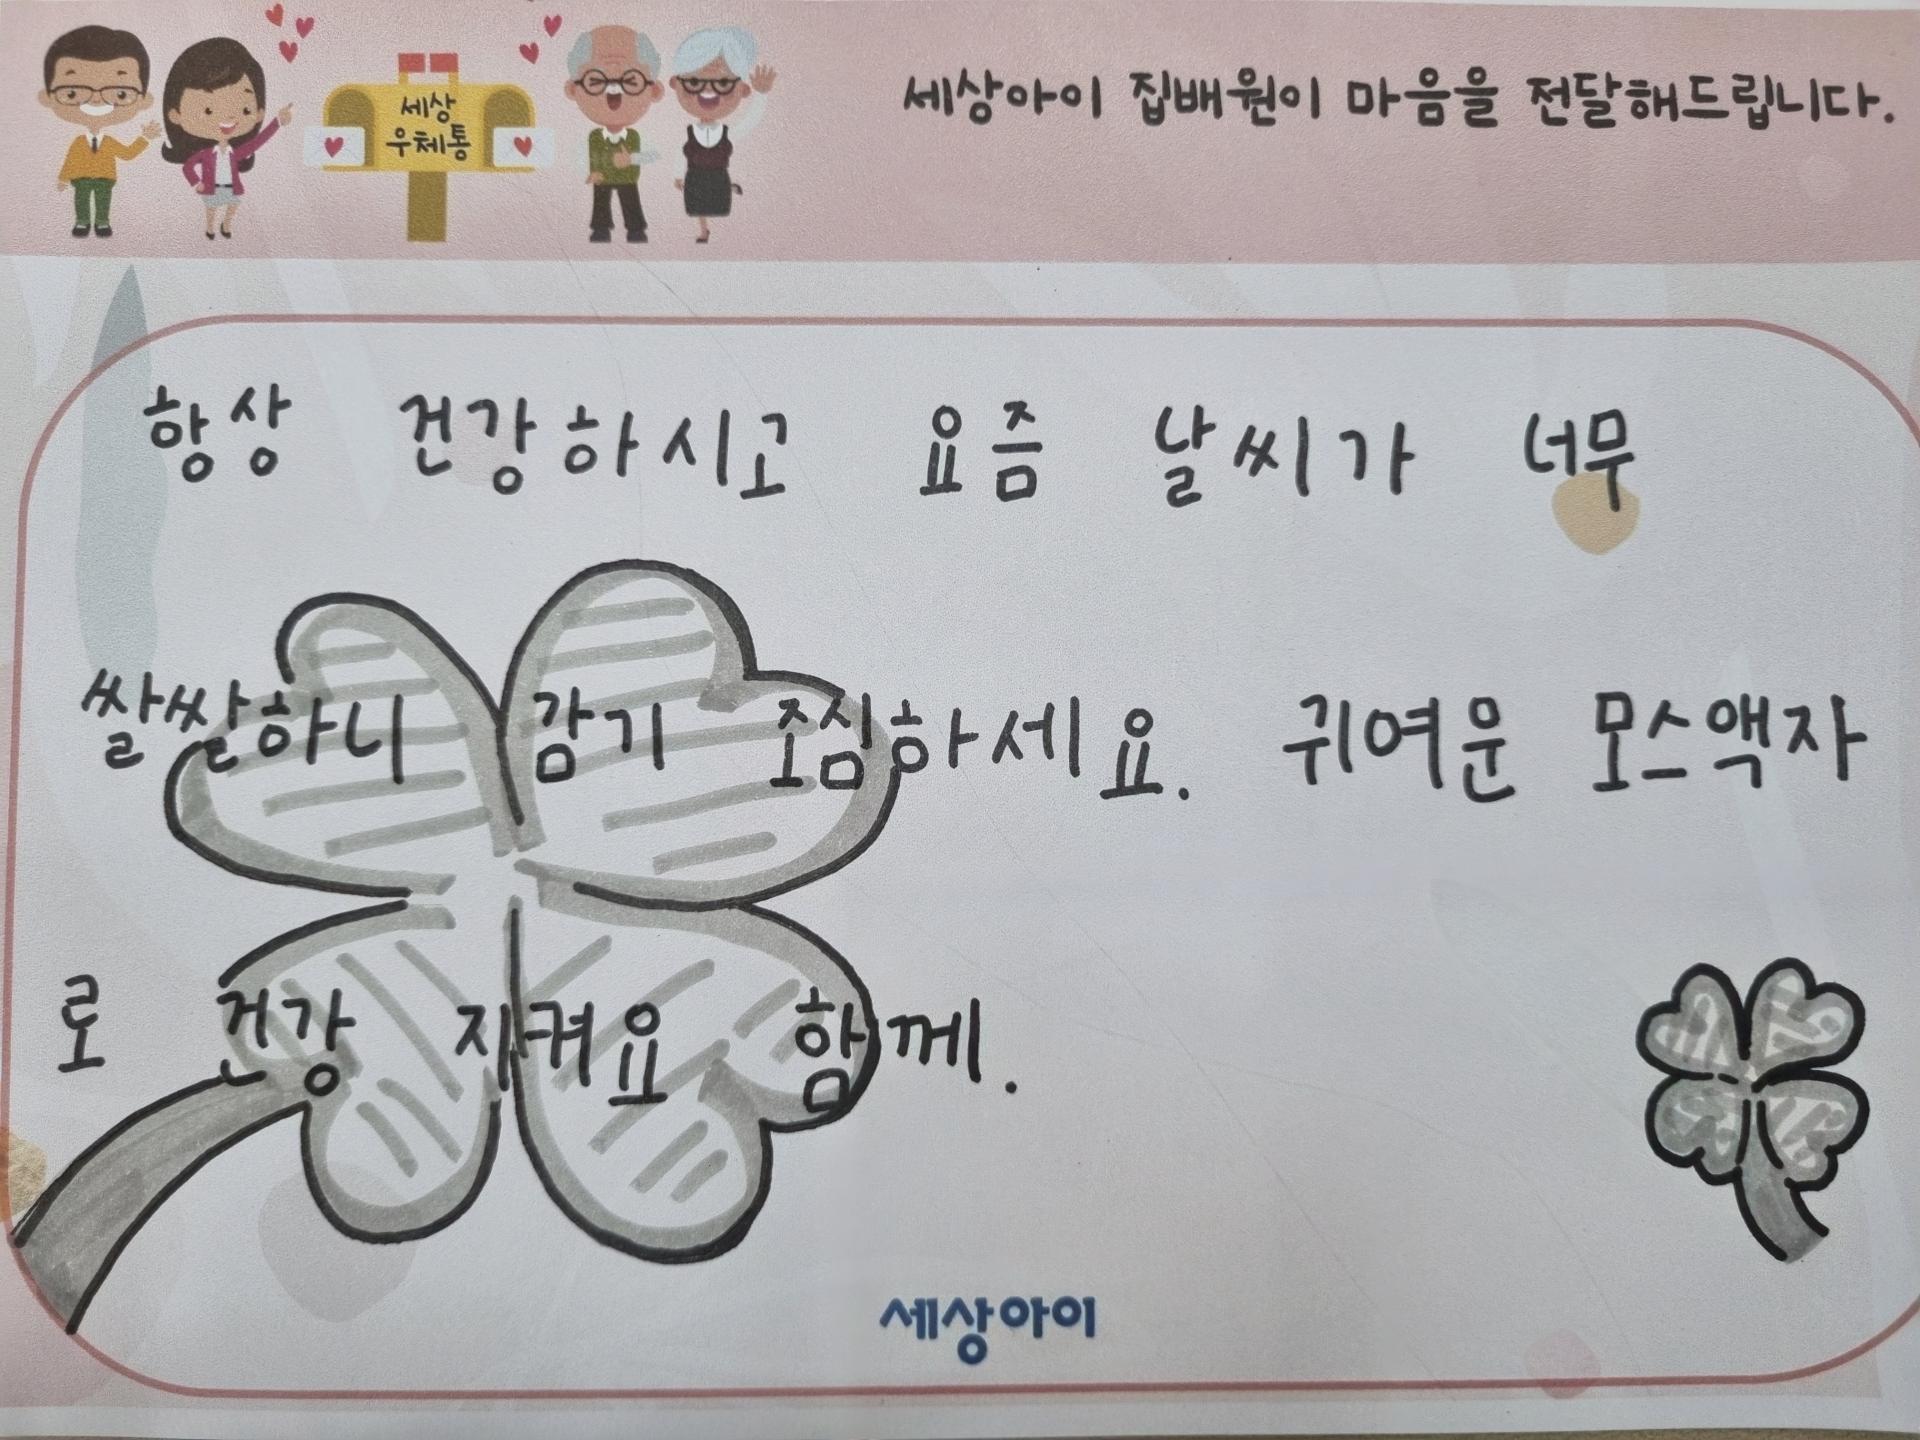 세상
우체통
세상아이 집배원이 마음을 전달해드립니다.
항상 건강하시고 요즘 날씨가 너무
쌀쌀하니 감기 조심하세요. 귀여운 모스액자
로 건강 지켜요 함께.
세상아이